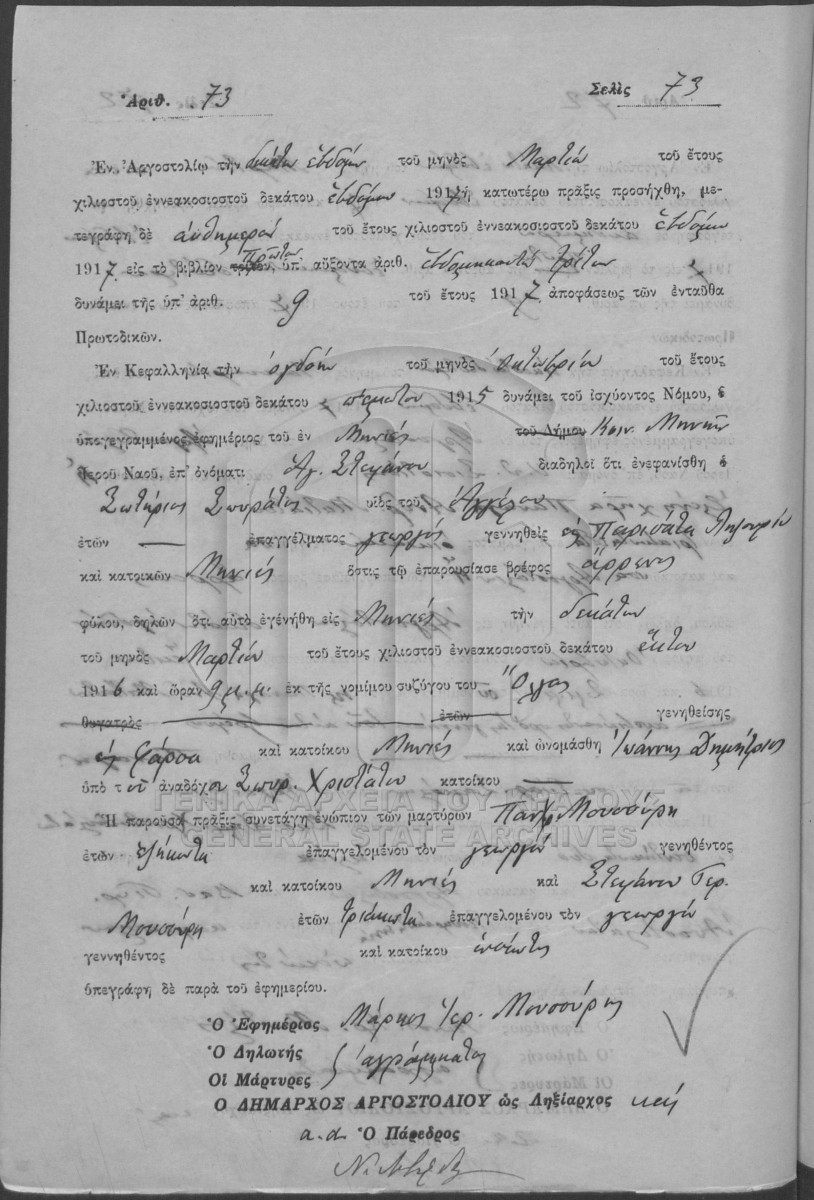 Ἀριθ. 73 Σελὶς 73
Ἐν Ἀργοστολίῳ τὴν δεκάτην ἑβδόμην τοῦ μηνὸς Μαρτίου τοῦ ἔτους
χιλιοστοῦ ἐννεακοσιοστοῦ δεκάτου ἑβδόμου 1917 ἡ κατωτέρω πρᾶξις προσήχθη, με-
τεγράφη δὲ αὐθημερὸν τοῦ ἔτους χιλιοστοῦ ἐννεακοσιοστοῦ δεκάτου ἑβδόμου
1917 εἰς τὸ βιβλίον πρῶτον, ὑπ' αὔξοντα ἀριθ. ἑβδομηκοστὸν τρίτον
δυνάμει τῆς ὑπ' ἀριθ. 9 τοῦ ἔτους 1917 ἀποφάσεως τῶν ἐνταῦθα
Πρωτοδικῶν.
Ἐν Κεφαλληνίᾳ τὴν ὀγδόην τοῦ μηνὸς Ὀκτωβρίου τοῦ ἔτους
χιλιοστοῦ ἐννεακοσιοστοῦ δεκάτου πέμπτου 1915 δυνάμει τοῦ ἰσχύοντος Νόμου, ὁ
ὑπογεγραμμένος ἐφημέριος τοῦ ἐν Μηνιές τοῦ Δήμου Κοιν. Μηνιῶν
ἱεροῦ Ναοῦ, ἐπ' ὀνόματι Ἁγ. Στεφάνου διαδηλοῖ ὅτι ἐνεφανίσθη ὁ
Σωτήριος υἱὸς τοῦ Ἀγγέλου
ἐτῶν — ἐπαγγέλματος γεωργός γεννηθεὶς εἰς Παρισάτα
καὶ κατοικῶν Μηνιές ὅστις τῷ ἐπαρουσίασε βρέφος ἄρρενος
φύλου, δηλῶν ὅτι αὐτὸ ἐγενήθη εἰς Μηνιές τὴν δεκάτην
τοῦ μηνὸς Μαρτίου τοῦ ἔτους χιλιοστοῦ ἐννεακοσιοστοῦ δεκάτου ἕκτου
1916 καὶ ὥραν 9 μ.μ. ἐκ τῆς νομίμου συζύγου του Ὄλγας
θυγατρὸς — ἐτῶν — γεννηθείσης
εἰς Φάρσα καὶ κατοίκου Μηνιές καὶ ὠνομάσθη Ἰωάννης Δημήτριος
ὑπὸ τοῦ ἀναδόχου Σπυρ. Χριστάτου κατοίκου —
Ἡ παροῦσα πρᾶξις συνετάγη ἐνώπιον τῶν μαρτύρων Μουσούρη
ἐτῶν ἑξήκοντα ἐπαγγελομένου τὸν γεωργόν γεννηθέντος
καὶ κατοίκου Μηνιές καὶ Στεφάνου Γερ.
Μουσούρη ἐτῶν τριάκοντα ἐπαγγελομένου τὸν γεωργόν
γεννηθέντος καὶ κατοίκου
ὑπεγράφη δὲ παρὰ τοῦ ἐφημερίου.
Ὁ Ἐφημέριος Μάρκος Γερ. Μουσούρης
Ὁ Δηλωτὴς
Οἱ Μάρτυρες } ἀγράμματοι
Ὁ ΔΗΜΑΡΧΟΣ ΑΡΓΟΣΤΟΛΙΟΥ ὡς Ληξίαρχος
α.α. Ὁ Πάρεδρος
ΓΕΝΙΚΑ ΑΡΧΕΙΑ ΤΟΥ ΚΡΑΤΟΥΣ
GENERAL STATE ARCHIVES